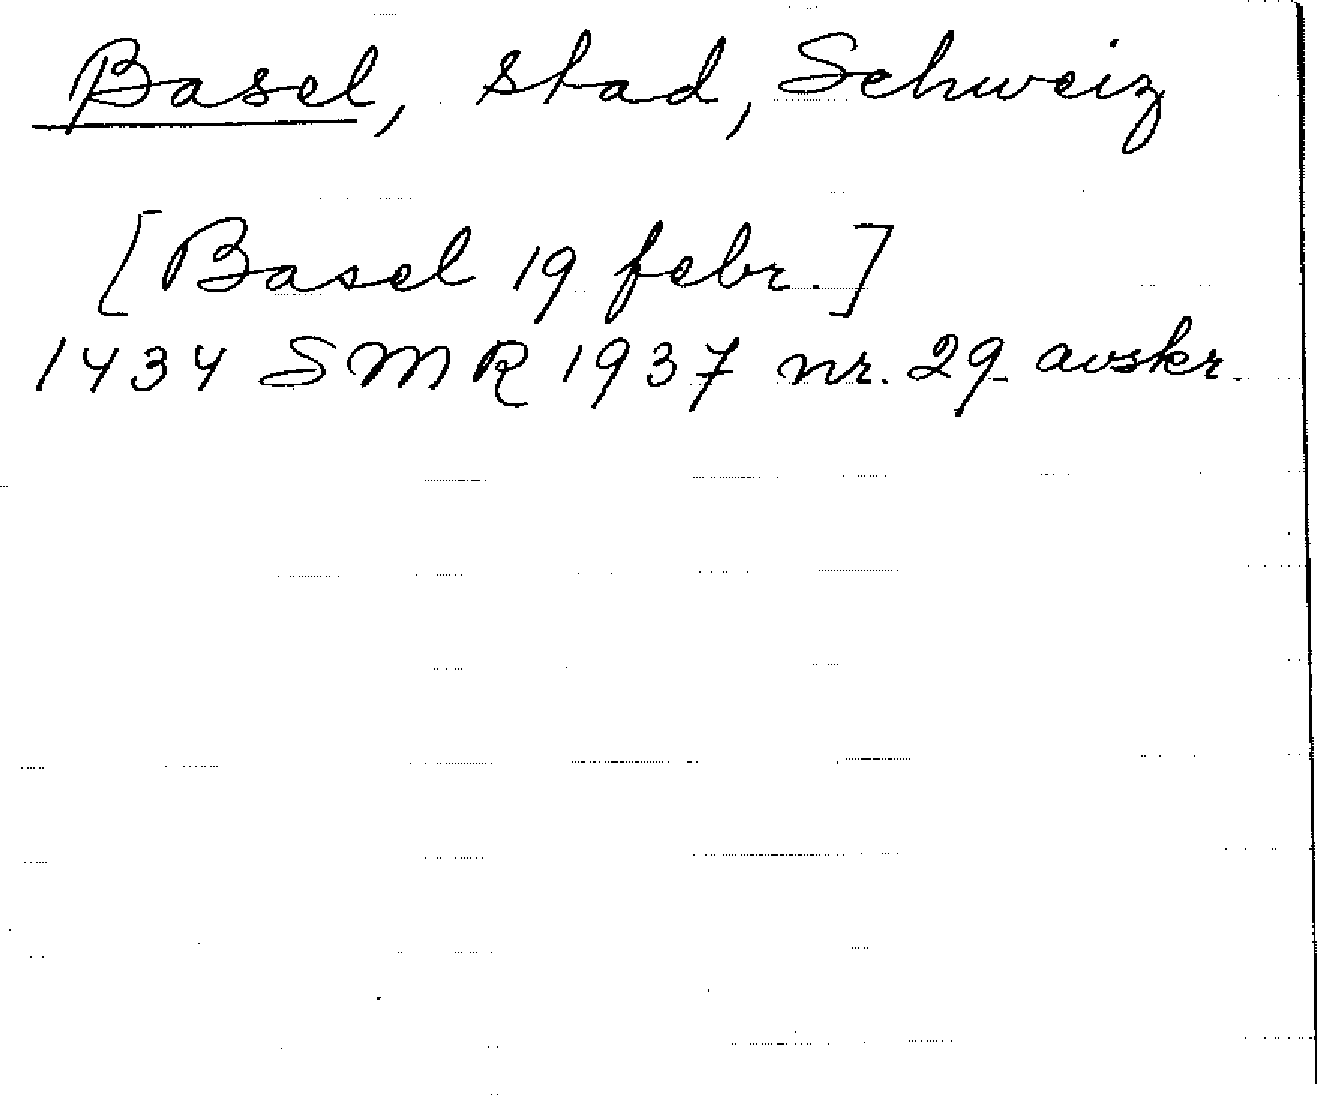 Basel, stad, Schweiz
[Basel 19 febr.]
1434 SMR 1937 nr. 29 avskr.